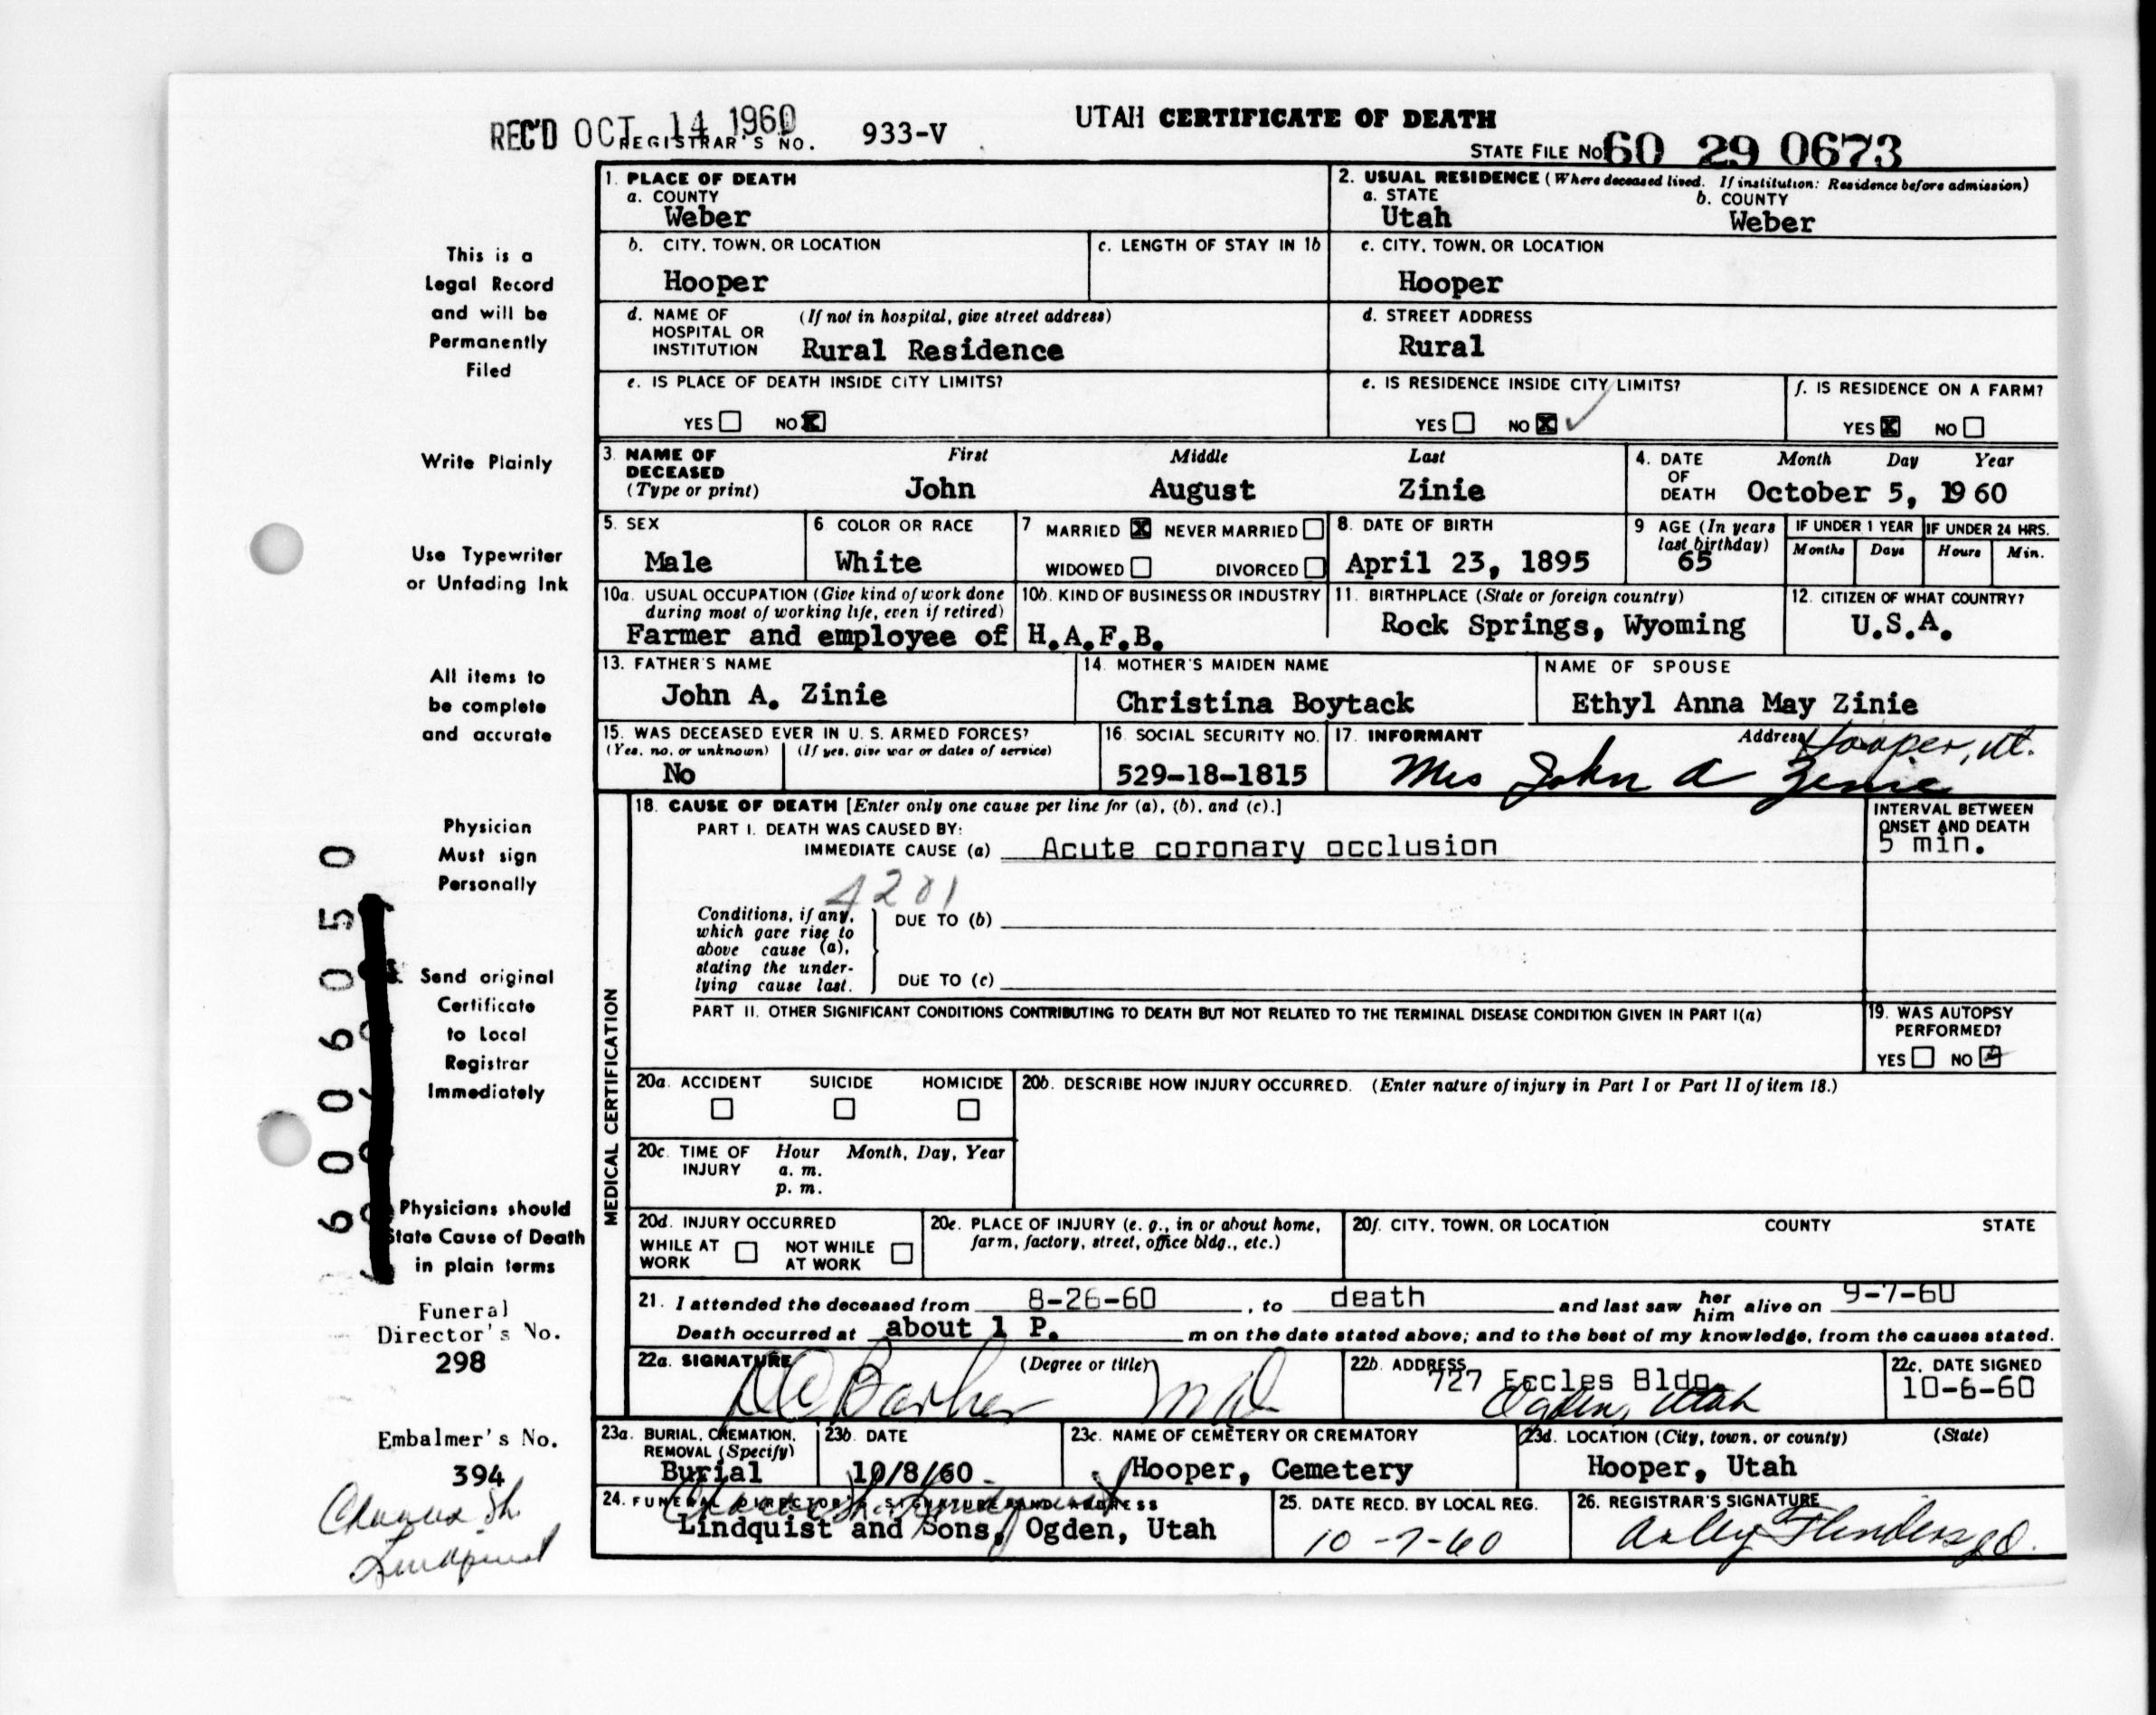 REC'D OCT 14 1960
REGISTRAR'S NO. 933-V
UTAH CERTIFICATE OF DEATH
STATE FILE NO. 60 29 0673
1. PLACE OF DEATH
a. COUNTY
Weber
2. USUAL RESIDENCE (Where deceased lived. If institution: Residence before admission)
a. STATE
Utah
b. COUNTY
Weber
b. CITY, TOWN, OR LOCATION
Hooper
c. LENGTH OF STAY IN 1b
c. CITY, TOWN, OR LOCATION
Hooper
d. NAME OF HOSPITAL OR INSTITUTION
(If not in hospital, give street address)
Rural Residence
d. STREET ADDRESS
Rural
e. IS PLACE OF DEATH INSIDE CITY LIMITS?
YES NO X
e. IS RESIDENCE INSIDE CITY LIMITS?
YES NO X
f. IS RESIDENCE ON A FARM?
YES X NO
3. NAME OF DECEASED (Type or print)
First Middle Last
John August Zinie
4. DATE OF DEATH
Month Day Year
October 5, 1960
5. SEX
Male
6 COLOR OR RACE
White
7 MARRIED X NEVER MARRIED
WIDOWED DIVORCED
8. DATE OF BIRTH
April 23, 1895
9 AGE (In years last birthday)
65
IF UNDER 1 YEAR
Months Days
IF UNDER 24 HRS.
Hours Min.
10a. USUAL OCCUPATION (Give kind of work done during most of working life, even if retired)
Farmer and employee of
10b. KIND OF BUSINESS OR INDUSTRY
H.A.F.B.
11. BIRTHPLACE (State or foreign country)
Rock Springs, Wyoming
12. CITIZEN OF WHAT COUNTRY?
U.S.A.
13. FATHER'S NAME
John A. Zinie
14. MOTHER'S MAIDEN NAME
Christina Boytack
NAME OF SPOUSE
Ethyl Anna May Zinie
15. WAS DECEASED EVER IN U. S. ARMED FORCES?
(Yes, no, or unknown) (If yes, give war or dates of service)
No
16. SOCIAL SECURITY NO.
529-18-1815
17. INFORMANT Address
Hooper, Ut.
Mrs John A Zinie
MEDICAL CERTIFICATION
18. CAUSE OF DEATH [Enter only one cause per line for (a), (b), and (c).]
PART I. DEATH WAS CAUSED BY:
IMMEDIATE CAUSE (a) Acute coronary occlusion
INTERVAL BETWEEN ONSET AND DEATH
5 min.
4201
Conditions, if any, which gave rise to above cause (a), stating the underlying cause last.
DUE TO (b)
DUE TO (c)
PART II. OTHER SIGNIFICANT CONDITIONS CONTRIBUTING TO DEATH BUT NOT RELATED TO THE TERMINAL DISEASE CONDITION GIVEN IN PART I(a)
19. WAS AUTOPSY PERFORMED?
YES NO
20a. ACCIDENT SUICIDE HOMICIDE
20b. DESCRIBE HOW INJURY OCCURRED. (Enter nature of injury in Part I or Part II of item 18.)
20c. TIME OF INJURY
Hour Month, Day, Year
a. m.
p. m.
20d. INJURY OCCURRED
WHILE AT WORK NOT WHILE AT WORK
20e. PLACE OF INJURY (e. g., in or about home, farm, factory, street, office bldg., etc.)
20f. CITY, TOWN, OR LOCATION COUNTY STATE
21. I attended the deceased from 8-26-60, to death and last saw her him alive on 9-7-60
Death occurred at about 1 P. m on the date stated above; and to the best of my knowledge, from the causes stated.
22a. SIGNATURE (Degree or title)
Barker MD
22b. ADDRESS
727 Eccles Bldg.
Ogden, Utah
22c. DATE SIGNED
10-6-60
23a. BURIAL, CREMATION, REMOVAL (Specify)
Burial
23b. DATE
10/8/60
23c. NAME OF CEMETERY OR CREMATORY
Hooper, Cemetery
23d. LOCATION (City, town, or county) (State)
Hooper, Utah
24. FUNERAL DIRECTOR'S SIGNATURE AND ADDRESS
Lindquist and Sons, Ogden, Utah
25. DATE RECD. BY LOCAL REG.
10-7-60
26. REGISTRAR'S SIGNATURE
Flinders
This is a
Legal Record
and will be
Permanently
Filed
Write Plainly
Use Typewriter
or Unfading Ink
All items to
be complete
and accurate
Physician
Must sign
Personally
Send original
Certificate
to Local
Registrar
Immediately
Physicians should
State Cause of Death
in plain terms
Funeral
Director's No.
298
Embalmer's No.
394
Lindquist
6006050